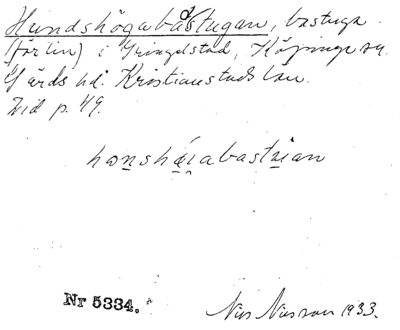 Hundshögabåstugan, bastuga
(för lin) i Gringelstad, Köpinge sn
Gärds hd. Kristianstads län.
Zid p. 49.
honshǻi̯abastu̯an
Nr 5334.
Nils Nilsson 1933.